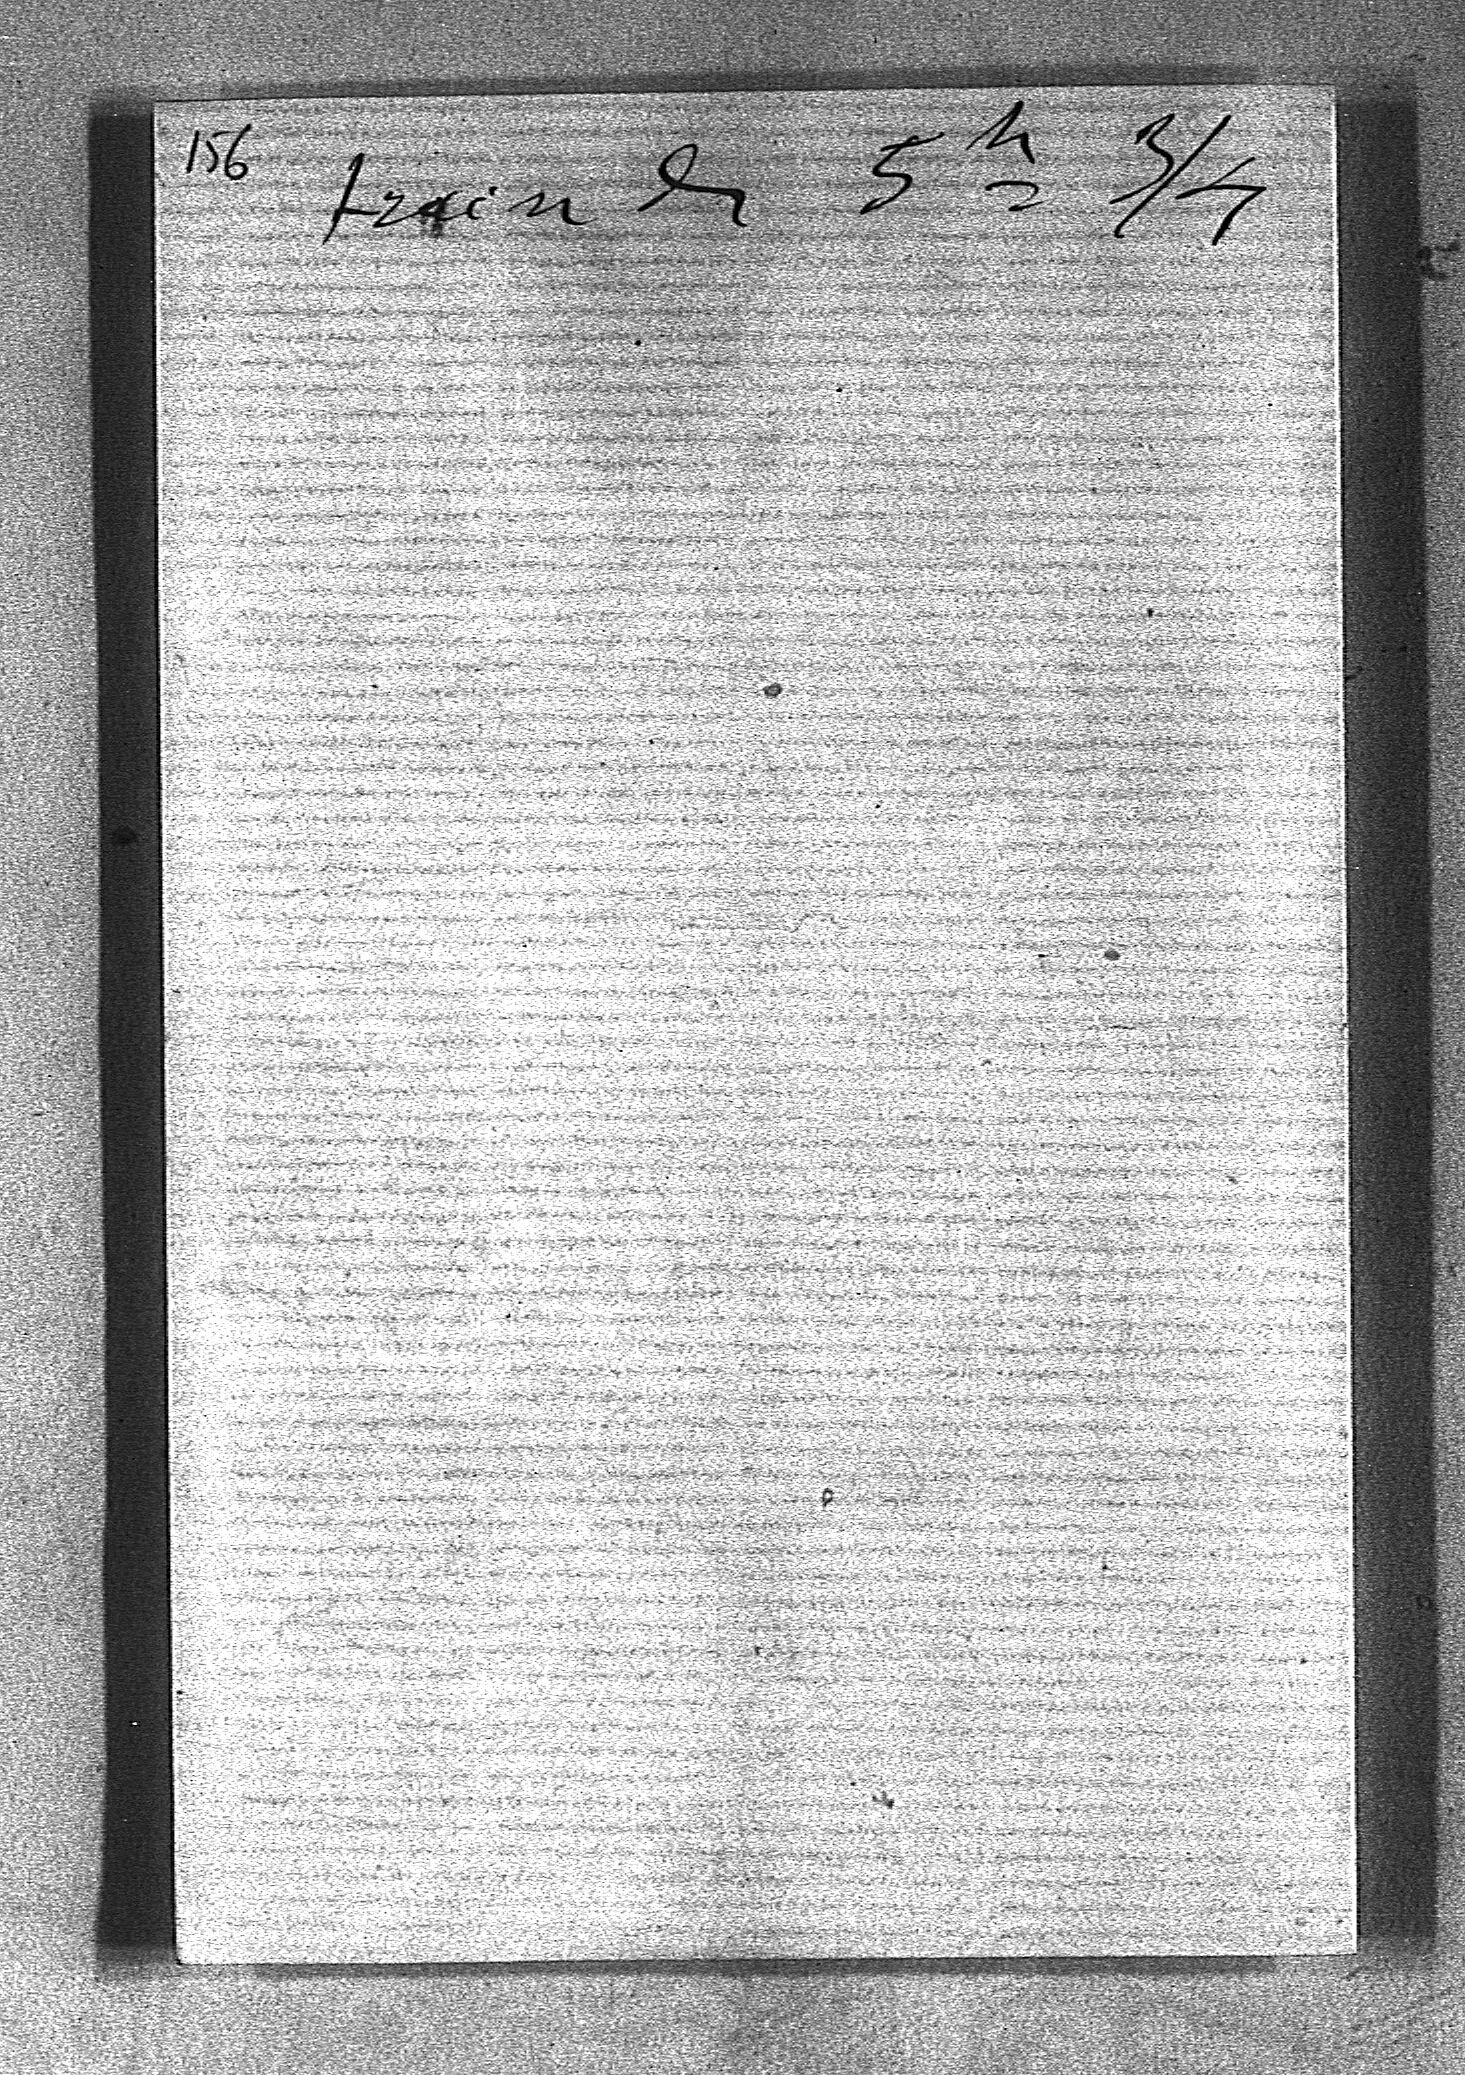 156
train de 5 h 3/4